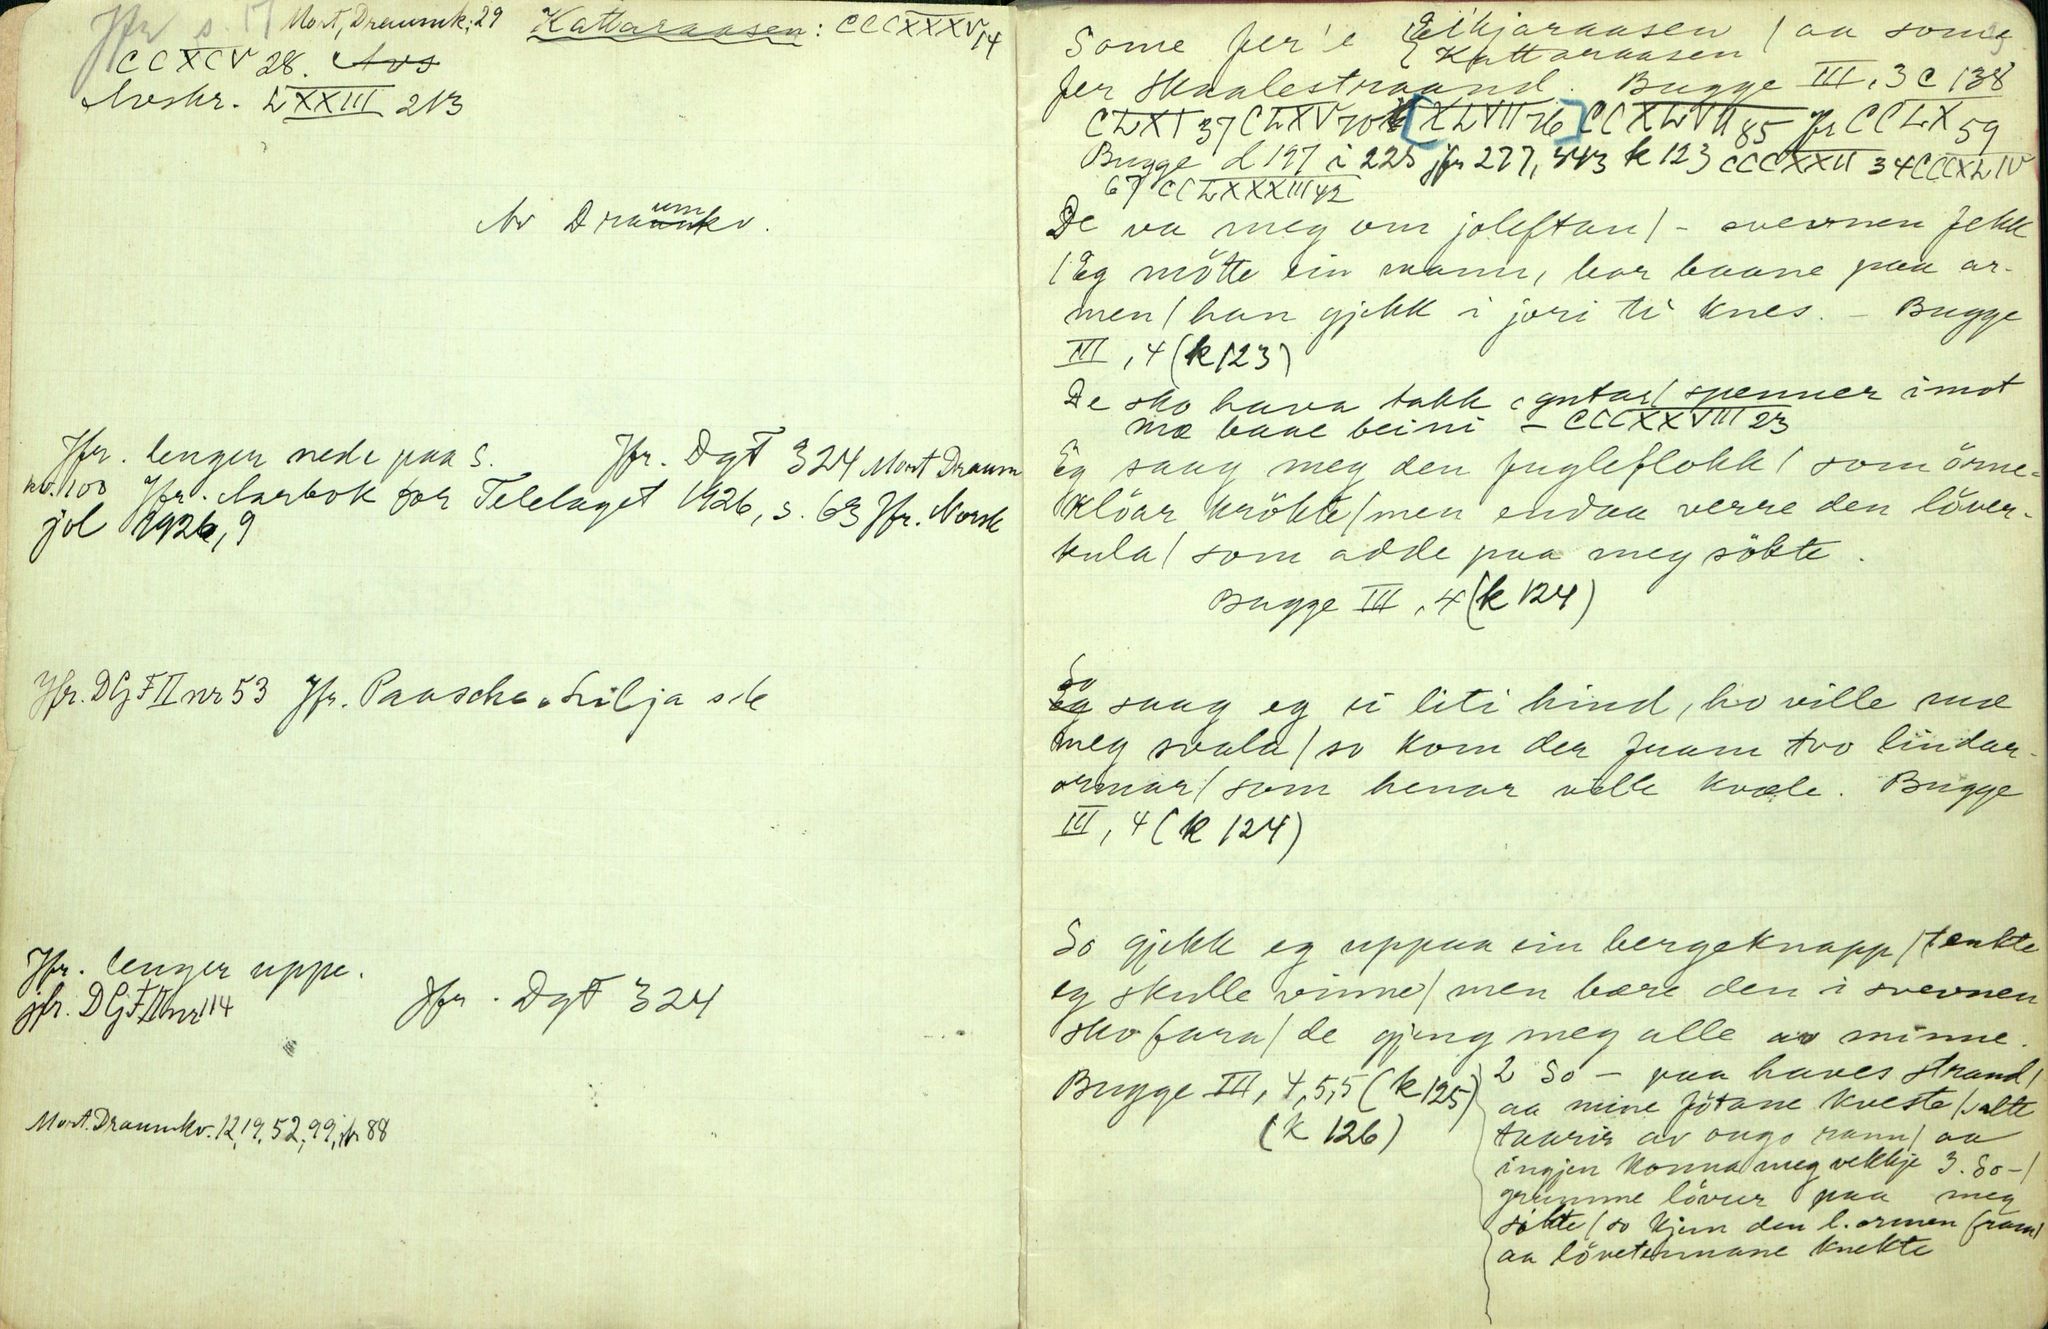 Jfr s. 17 Mort, Draumk; 29 Kattaraasen: CCCXXXV, 14
CCXCV 28. Avs
Avskr. LXXIII 213
Av Draumkv.
Jfr. lenger nede paa s. Jfr. DgT 324 Mort Draum
nr. 100 Jfr. Aarbok for Telelaget 1926, s. 63 Jfr. Norsk
jol 1926, 9
Jfr. DGFII nr 53 Jfr. Paasche, Lilja s. 6
Jfr. lenger uppe.
jfr. DGFII nr 114 Jfr. DgT 324
Mort. Draumkv. 12, 19, 52, 99, jfr 88
Some fer'e Eikjaraasen / aa some
Kattaraasen
fer Skaalestraand. Bugge III, 3 C 138
CLXI 37 CLXV 70 [XLVII 76] CCXLVII 85 Jfr CCLX 59
Bugge d 197 i 225 jfr 277, 443 k 123 CCCXXII 34 CCCXLIV
67 CCLXXXIII 42
De va meg om joleftan / - svevnen fekk
/ Eg mötte ein mann, bar baane paa ar-
men / han gjekk i jori ti knes. - Bugge
III, 4 (k 123)
De sko hava takk, gutar / spenner imot
mæ baae beini - CCCXXVIII 23
Eg saag meg den fugleflokk / som örne-
klöar krökte / men endaa verre den löver-
kula / som adde paa meg sökte.
Bugge III, 4 (k 124)
So
Eg saag eg ei liti hind, ho ville mæ
meg svala / so kom der fram tvo lindar-
ormar / som henar ville kvæle. Bugge
III, 4 (k 124)
So gjekk eg uppaa ein bergeknapp / tenkte
eg skulle vinne / men bære den i svevnen
sko fara / de gjeng meg alle av minne.
Bugge III, 4, 5, 5 (k 125)
(k 126)
2 So - paa haves strand /
aa mine fötane kveste / salte
taarir av augo rann / aa
ingjen konna meg vekkje 3. So - /
grumme lövur paa meg
sökte / so kjem den l. ormen fram /
aa lövetennane knekte